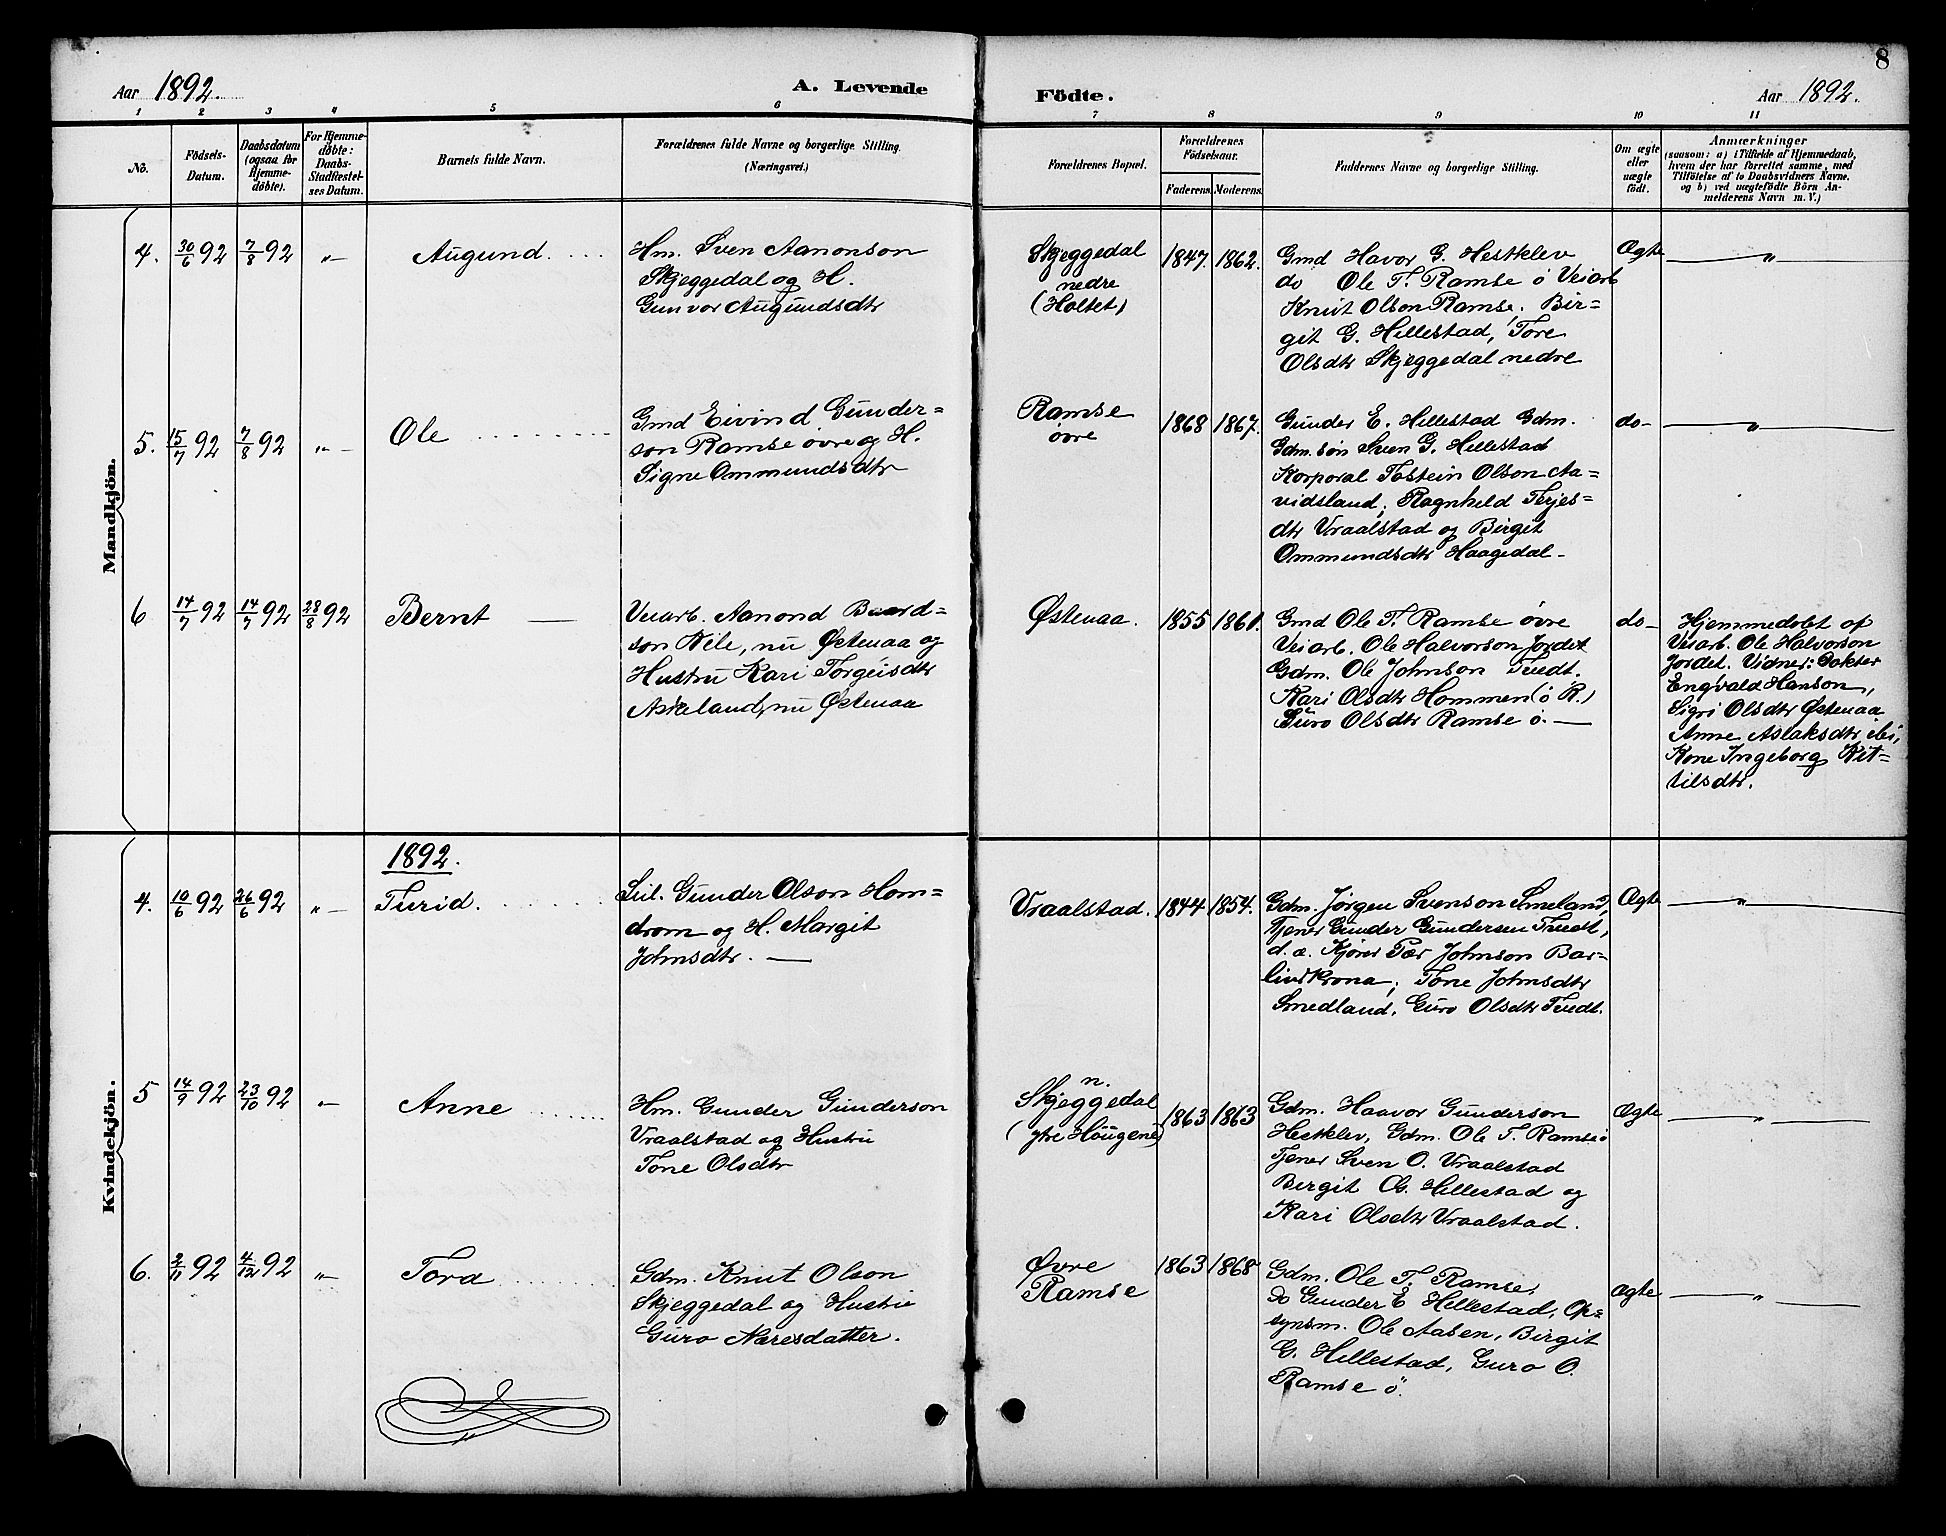 8
Aar 1892. A. Levende Födte. Aar 1892.
1 2 3 4 5 6 7 8 9 10 11
No.
Födsels-
Datum.
Daabsdatum
(ogsaa for
Hjemme-
døbte).
For Hjemme-
døbte:
Daabs-
Stadfæstel-
ses Datum.
Barnets fulde Navn.
Forældrenes fulde Navne og borgerlige Stilling.
(Næringsvei.)
Forældrenes Bopæl.
Forældrenes
Födselsaar.
Faderens. Moderens.
Faddernes Navne og borgerlige Stilling.
Om ægte
eller
uægte
födt.
Anmærkninger
(saasom: a) i Tilfælde af Hjemmedaab,
hvem der har forrettet samme, med
Tilföielse af to Daabsvidners Navne,
og b) ved uægtefödte Börn An-
melderens Navn m. V.)
Mandkjön.
4. 30/6 92 7/8 92 " Augund.
Hm. Sven Aanonson
Skjeggedal og H.
Gunvor Augundsdtr
Skjeggedal
nedre
(Holtet)
1847. 1862.
Gmd Havor G. Hestklev
do Ole T. Ramse ö Veiarb
Knut Olson Ramse. Bir-
git G. Hillestad, Tore
Olsdtr Skjeggedal nedre
Ægte "
5. 15/7 92 7/8 92 " Ole
Gmd Eivind Gunder-
son Ramse övre og H.
Signe Ommundsdtr
Ramse
övre
1868 1867.
Gunder E. Hillestad Gdm.
Gdm. sön Sven G. Hillestad
Korporal Tostein Olson Aa-
vidsland, Ragnhild Terjes-
dtr Vraalstad og Birgit
Ommundsdtr Haagedal
do "
6 14/7 92 14/7 92 28/8 92 Bernt
Veiarb. Aanond Baard-
son Nele, nu Østenaa og
Hustru Kari Torgeisdtr
Askeland, nu Østenaa
Østenaa.
1855 1861.
Gmd Ole T. Ramse övre
Veiarb. Ole Halvorson Jordet
Gdm. Ole Johnson Tvedt.
Kari Olsdtr Hommen (ö R.)
Guro Olsdtr Ramse ö.
do
Hjemmedöbt af
Veiarb. Ole Halvorson
Jordet. Vidner: Dokter
Engvald Hanson,
Sigri Olsdtr Østenaa
Anne Aslaksdtr ibi,
Kone Ingeborg Kit-
tilsdtr.
Kvindekjön.
1892.
4. 10/6 92 26/6 92 " Turid.
Gunder Olson Hom-
drom og H. Margit
Johnsdtr.
Vraalstad.
1844 1854.
Gdm. Jörgen Svenson Smeland,
Tjener Gunder Gundersen Tvedt,
d. a. Kjörer Per Johnson Bar-
lindkrona; Tone Johnsdtr
Smedland, Guro Olsdtr Tvedt.
Ægte "
5 14/9 92 23/10 92 " Anne
Hm. Gunder Gunderson
Vraalstad og Hustru
Tone Olsdtr
n.
Skjeggedal
(ytre Hougene)
1863 1863
Gdm. Haavor Gunderson
Hestklev, Gdm. Ole T. Ramse ö
Tjener Sven O. Vraalstad
Birgit G. Hillestad og
Kari Olsdtr Vraalstad.
Ægte "
6. 2/11 92 4/12 92 " Tora
Gdm. Knut Olson
Skjeggedal og Hustru
Guro Næresdatter.
Øvre
Ramse
1863 1868
Gdm. Ole T. Ramse,
do Gunder E Hillestad, Op-
synsm. Ole Aasen, Birgit
G. Hillestad, Guro O.
Ramse ö.
Ægte "